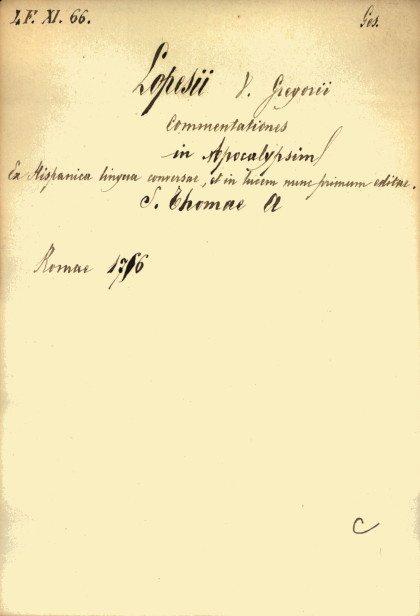 I.F. XI. 66. Ges.
Lopesii V. Gregorii
Commentationes
in Apocalypsim
Ex Hispanica lingua conversae, et in lucem nunc primum editae.
S. Thomae A
Romae 1766
C